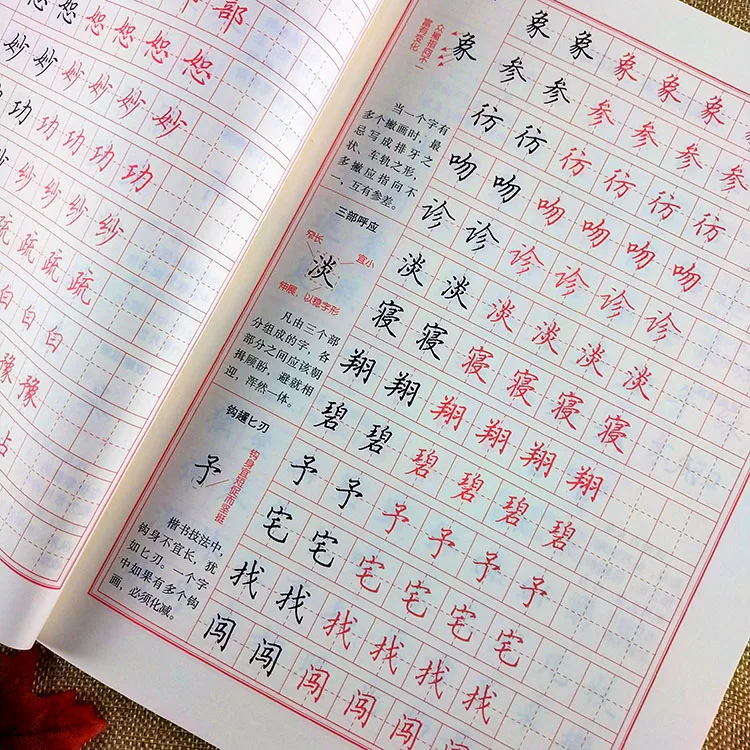 部
恕 恕 恕 恕 恕
妙 妙 妙 妙 妙 妙
功 功 功 功 功
纱 纱 纱 纱
疏 疏 疏
白 白 白
豫 豫
占
众撇指向不一
富有变化
象
当一个字有
多个撇画时，最
忌写成排牙之
状、车轨之形，
多撇应指向不
一，互有参差。
三部呼应
宜长
宜小
淡
伸展，以稳字形
凡由三个部
分组成的字，各
部分之间应该朝
揖顾盼、避就相
迎，浑然一体。
钩趯匕刃
予
钩身宜短促而坚挺
楷书技法中，
钩身不宜长，犹
如匕刃。一个字
中如果有多个钩
画，必须化减。
象 象 象 象 象
参 参 参 参 参 参
彷 彷 彷 彷 彷 彷
吻 吻 吻 吻 吻 吻
诊 诊 诊 诊 诊 诊
淡 淡 淡 淡 淡 淡
寝 寝 寝 寝 寝 寝
翔 翔 翔 翔 翔 翔
碧 碧 碧 碧 碧 碧
予 予 予 予 予 予
宅 宅 宅 宅 宅 宅
找 找 找 找 找 找
闯 闯 闯 闯 闯 闯